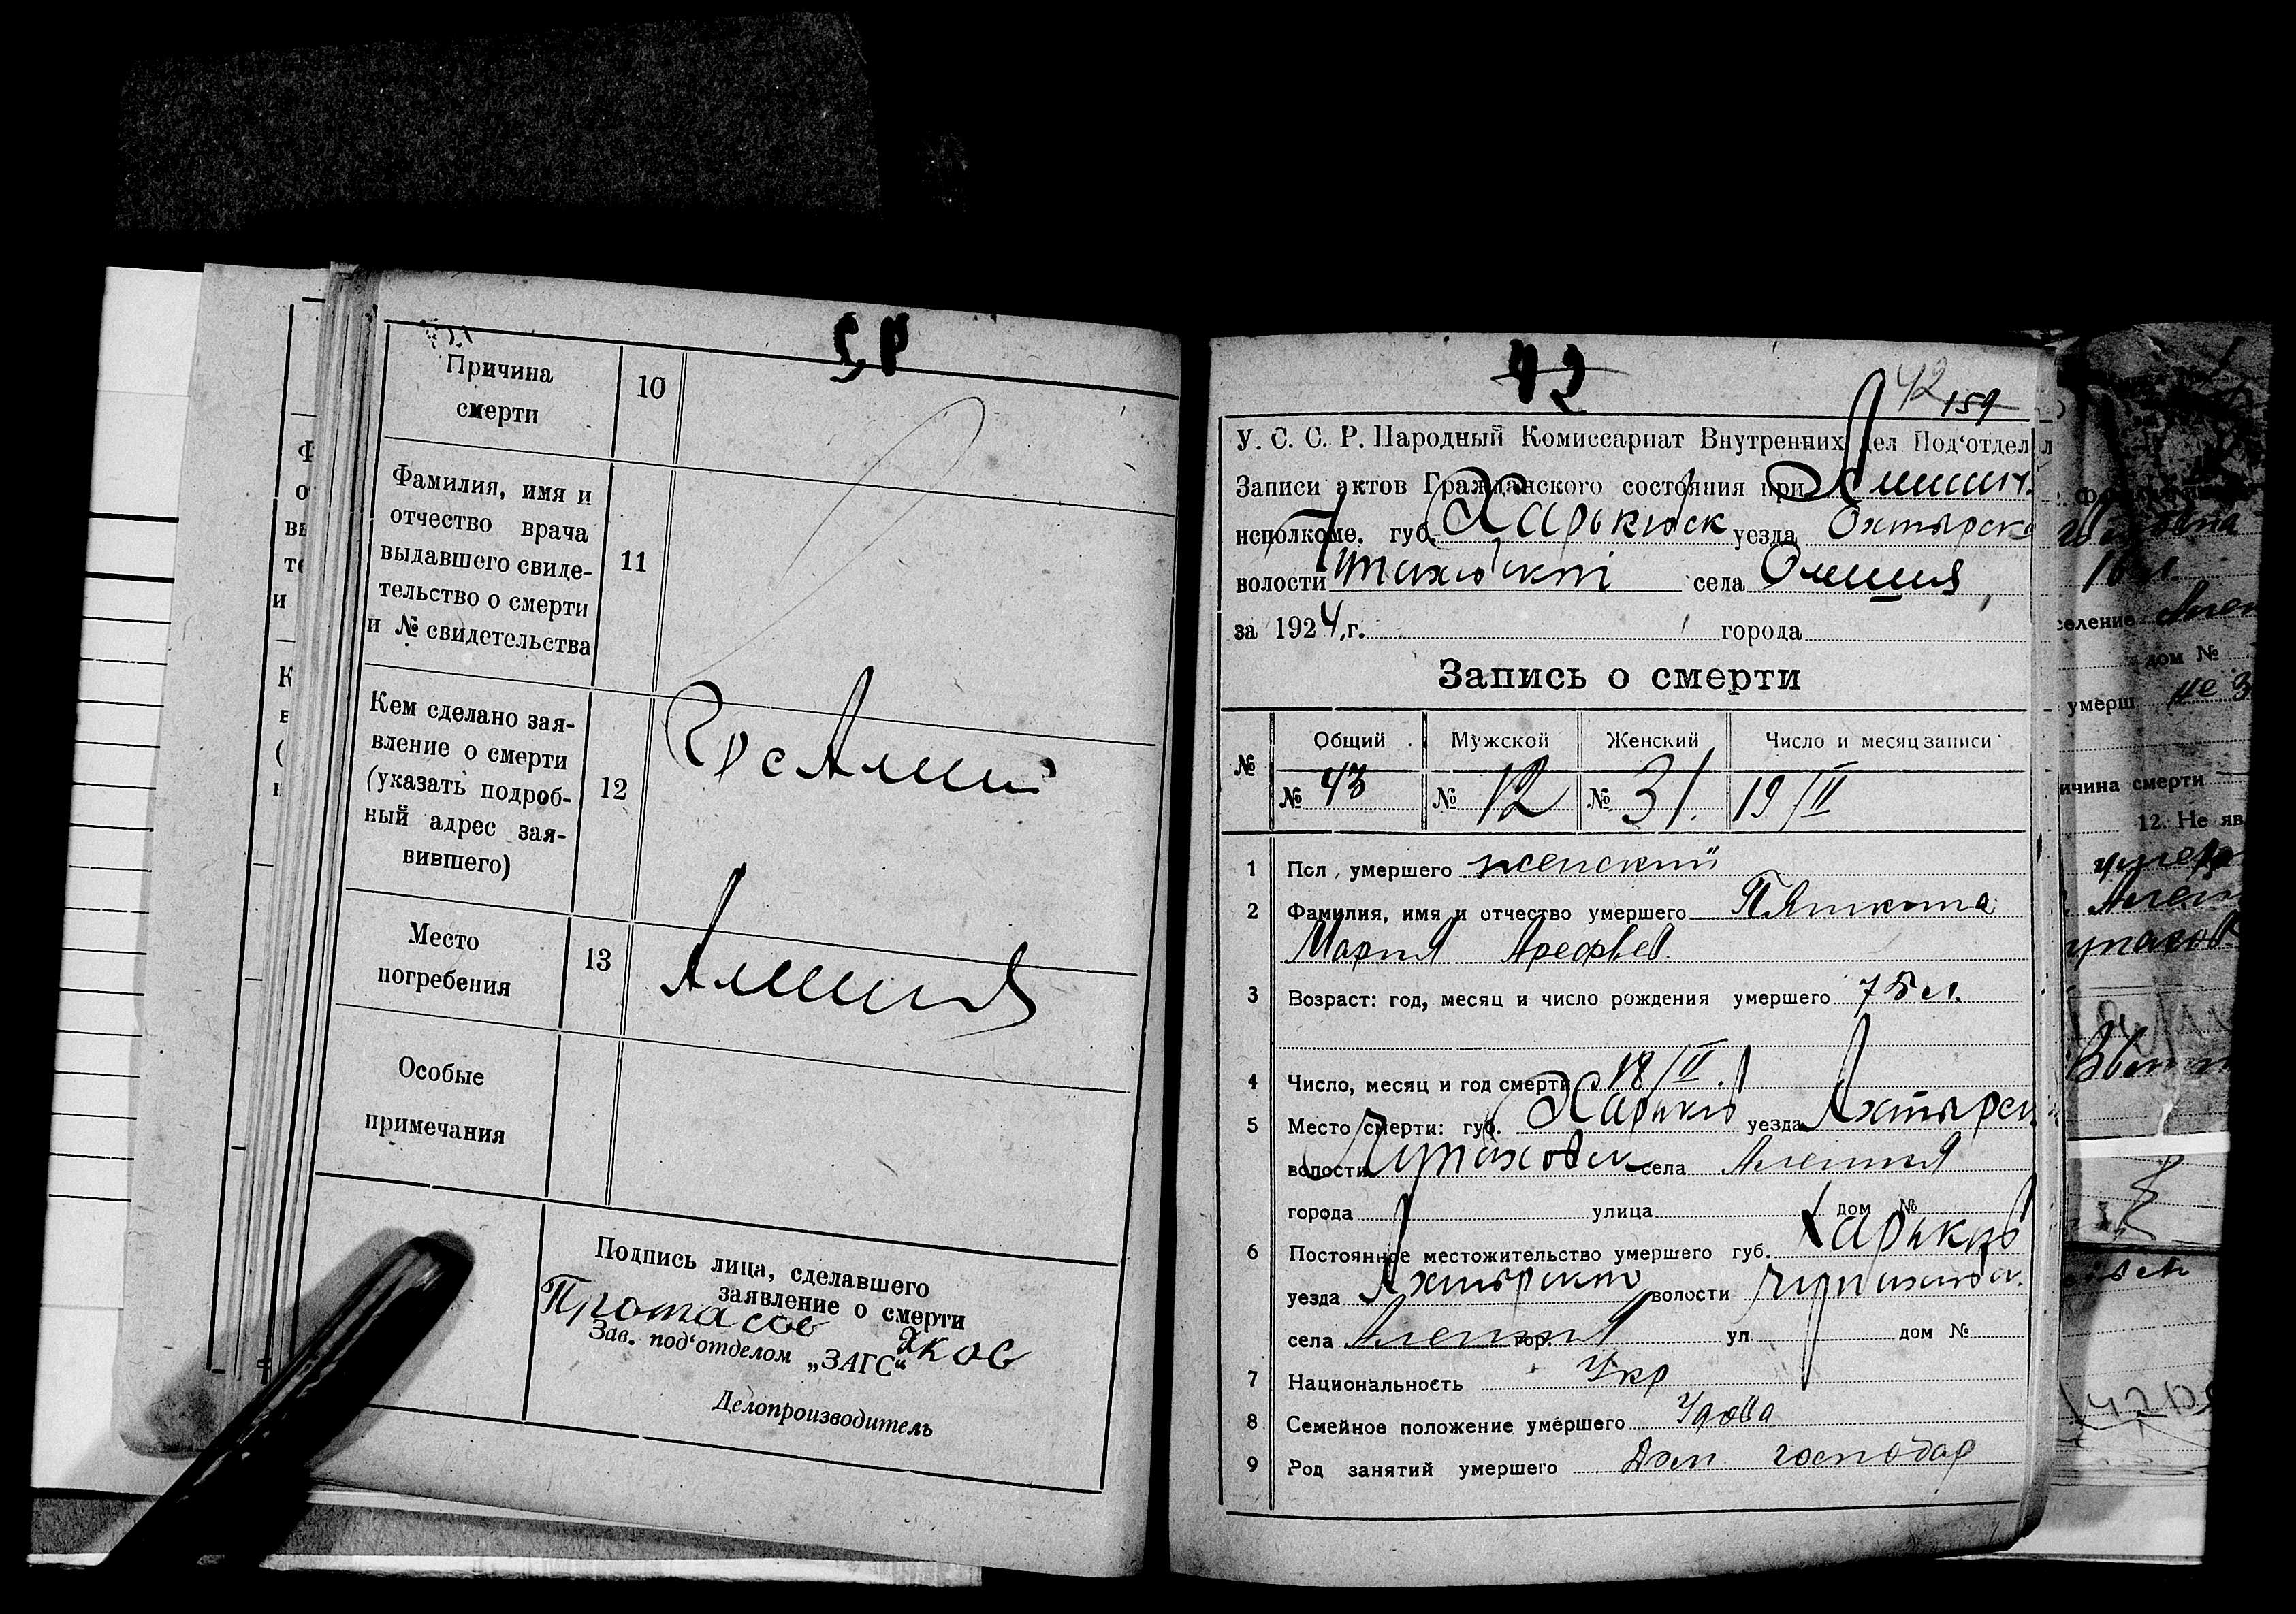 Причина
смерти
10
Фамилия, имя и
отчество врача
выдавшего свиде-
тельство о смерти
и № свидетельства
11
Кем сделано зая-
вление о смерти
(указать подроб-
ный адрес зая-
вившего)
12
Место
погребения
13
Особые
примечания
Подпись лица, сделавшего
заявление о смерти
Протасов
Зав. под'отделом „ЗАГС“
Делопроизводитель
42
42 159
У. С. С. Р. Народный Комиссариат Внутренних Дел Под'отдел
Записи актов Гражданского состояния при
исполкоме. губ. Харьковск уезда Охтырско
волости села Олешня
за 1924 г. города
Запись о смерти
№ Общий Мужской Женский Число и месяц записи
№ 43 № 12 № 31 19/II
1 Пол умершего женский
2 Фамилия, имя и отчество умершего
Мария Арефьев
3 Возраст: год, месяц и число рождения умершего 75 л.
4 Число, месяц и год смерти 18/II.
5 Место смерти: губ. Харьков уезда Ахтырск
волости Чупаховск села Алешня
города улица дом №
6 Постоянное местожительство умершего губ. Харьков
уезда Ахтырского волости Чупаховск.
села Алешня гор. ул. дом №
7 Национальность Укр
8 Семейное положение умершего Удова
9 Род занятий умершего господар